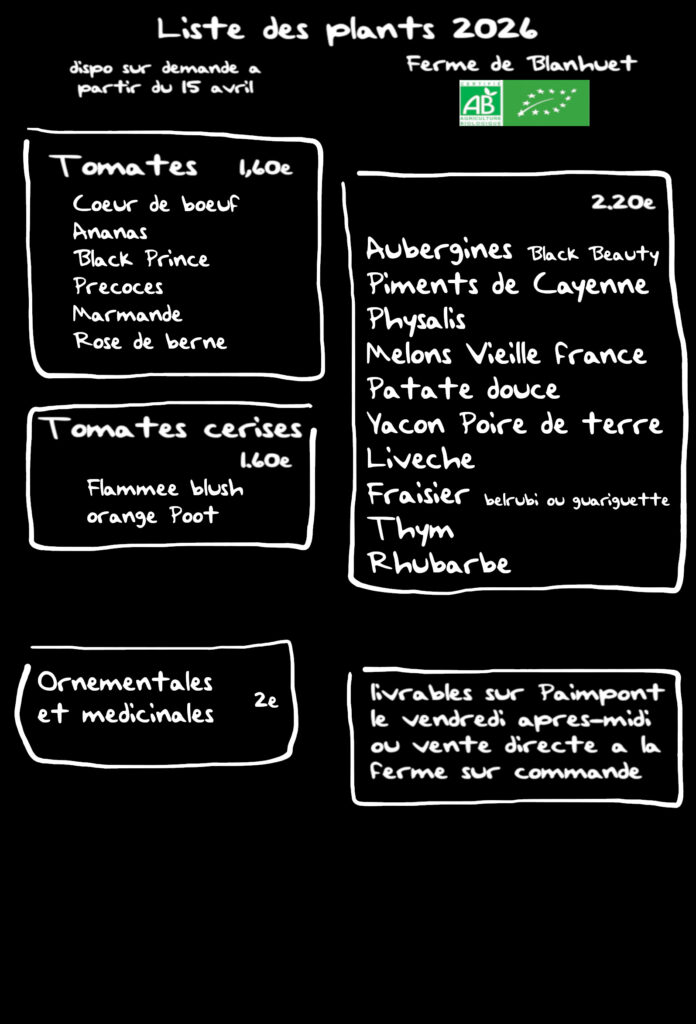 Liste des plants 2026
dispo sur demande a
partir du 15 avril
Ferme de Blanhuet
CERTIFIÉ
AB
AGRICULTURE
BIOLOGIQUE
Tomates 1,60e
Coeur de boeuf
Ananas
Black Prince
Precoces
Marmande
Rose de berne
Tomates cerises
1.60e
Flammee blush
orange Poot
Ornementales
et medicinales 2e
2.20e
Aubergines Black Beauty
Piments de Cayenne
Physalis
Melons Vieille france
Patate douce
Yacon Poire de terre
Liveche
Fraisier belrubi ou guariguette
Thym
Rhubarbe
livrables sur Paimpont
le vendredi apres-midi
ou vente directe a la
ferme sur commande